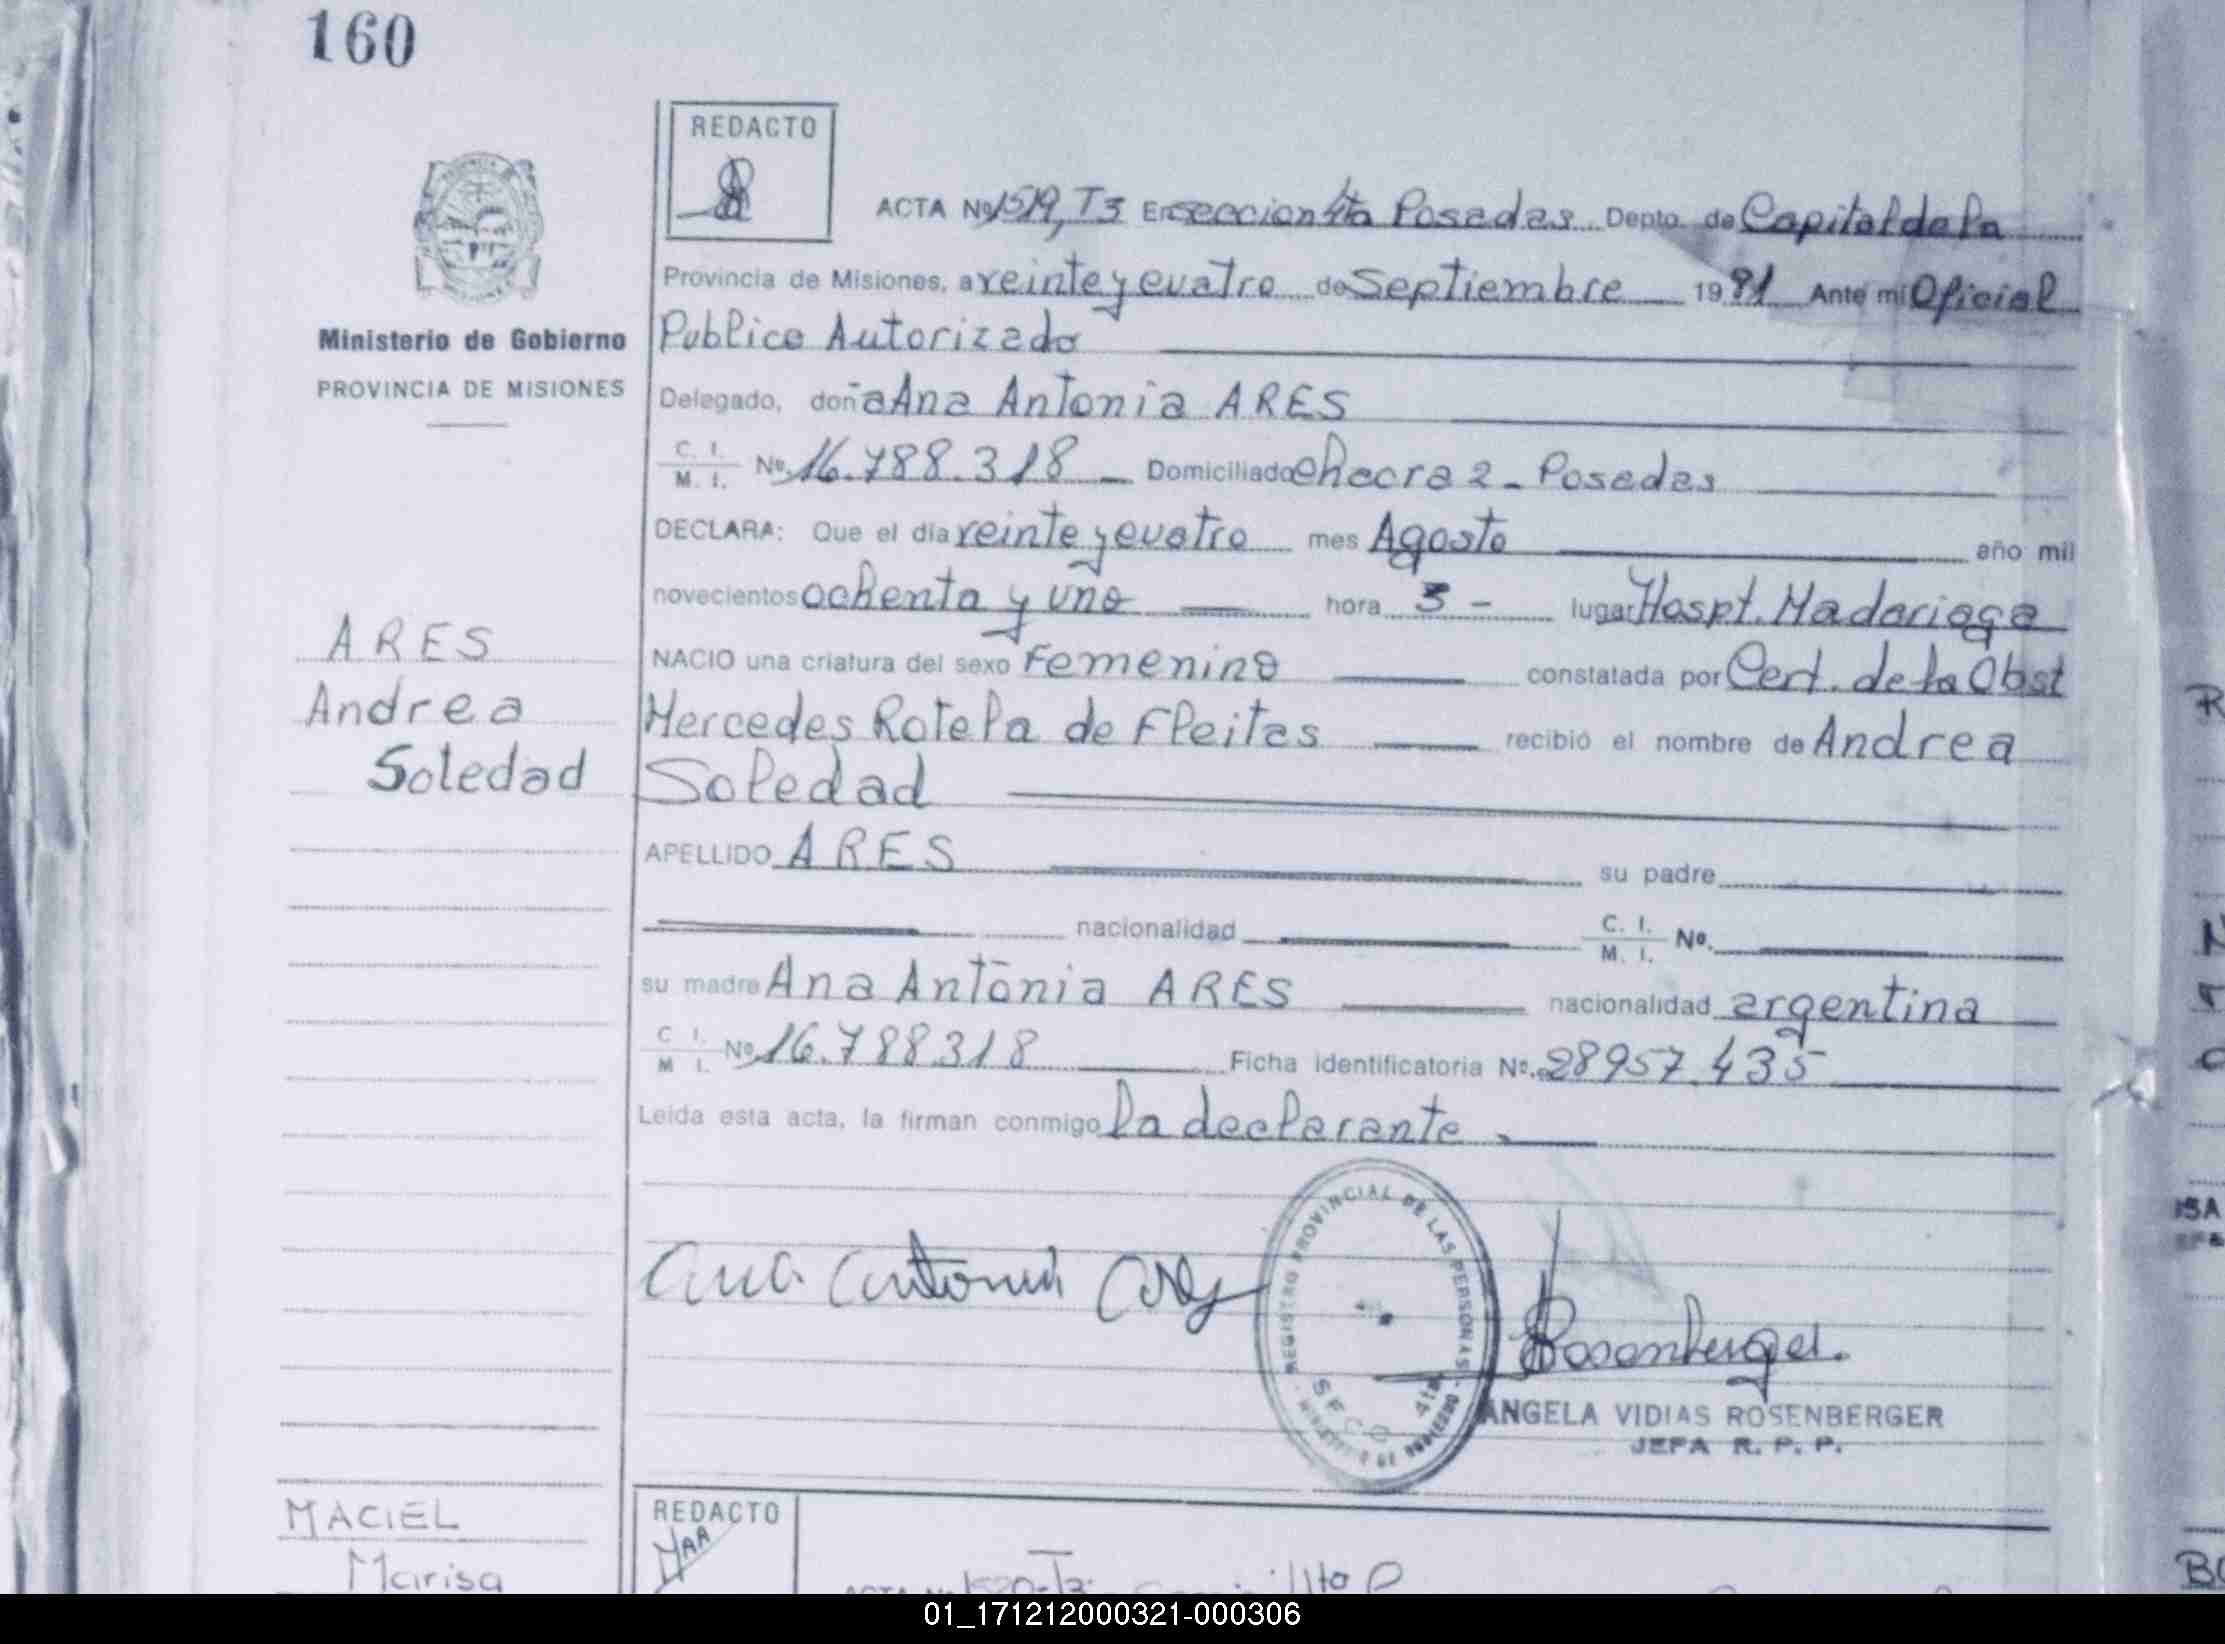 160
REDACTO
ACTA Nº 1519, T3 En seccion 4ta Posadas Depto. de Capital de la
Provincia de Misiones, a veinte y cuatro de Septiembre 1981 Ante mi Oficial
Publico Autorizado
Ministerio de Gobierno
PROVINCIA DE MISIONES
Delegado, doña Ana Antonia ARES
C. I. M. I. Nº 16.788.318 - Domiciliado chacra 2 - Posadas
DECLARA: Que el día veinte y cuatro mes Agosto año mil
novecientos ochenta y uno hora 3 - lugar Hospt. Madariaga
NACIO una criatura del sexo Femenino constatada por Cert. de la Obst
Mercedes Rotela de Fleitas recibió el nombre de Andrea
Soledad
ARES
Andrea
Soledad
APELLIDO ARES su padre
nacionalidad C. I. M. I. Nº.
su madre Ana Antonia ARES nacionalidad argentina
C. I. M. I. Nº 16.788318 Ficha identificatoria Nº. 28957.435
Leída esta acta, la firman conmigo la declarante.
Ana Antonia Ares
REGISTRO PROVINCIAL DE LAS PERSONAS
MINISTERIO DE GOBIERNO
SECC 4ta
Rosenberger.
ANGELA VIDIAS ROSENBERGER
JEFA R. P. P.
MACIEL
Marisa
REDACTO
01_171212000321-000306